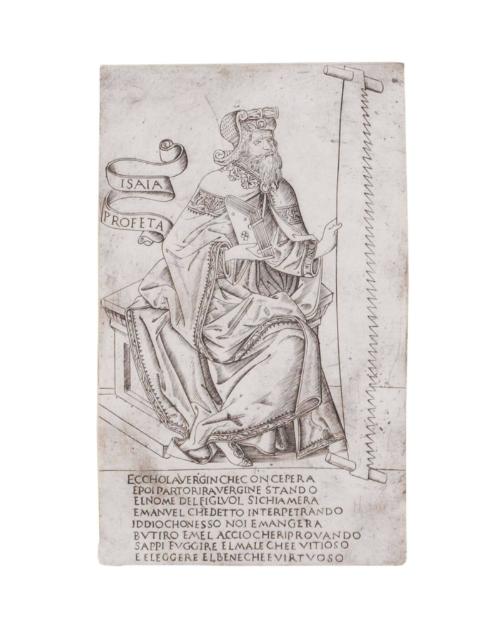 ISAIA
PROFETA
ECCHOLAVERGINCHECONCEPERA
EPOIPARTORIRAVERGINE STANDO
ELNOME DELFIGLVOL SICHIAMERA
EMANVEL CHEDETTO INTERPETRANDO
IDDIOCHONESSO NOI EMANGERA
BVTIRO EMEL ACCIOCHERIPROVANDO
SAPPI FVGGIRE ELMALECHEE VITIOSO
E ELEGGERE ELBENECHEEVIRTVOSO